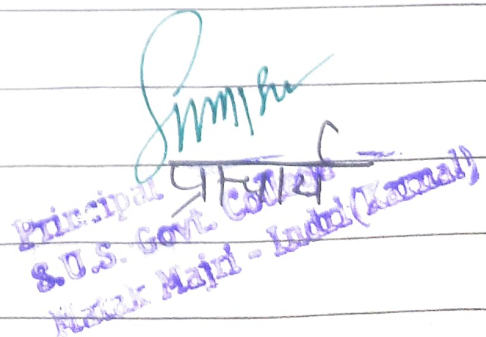 प्राचार्य
Principal
S.U.S. Govt. College
Matak Majri - Indri (Karnal)